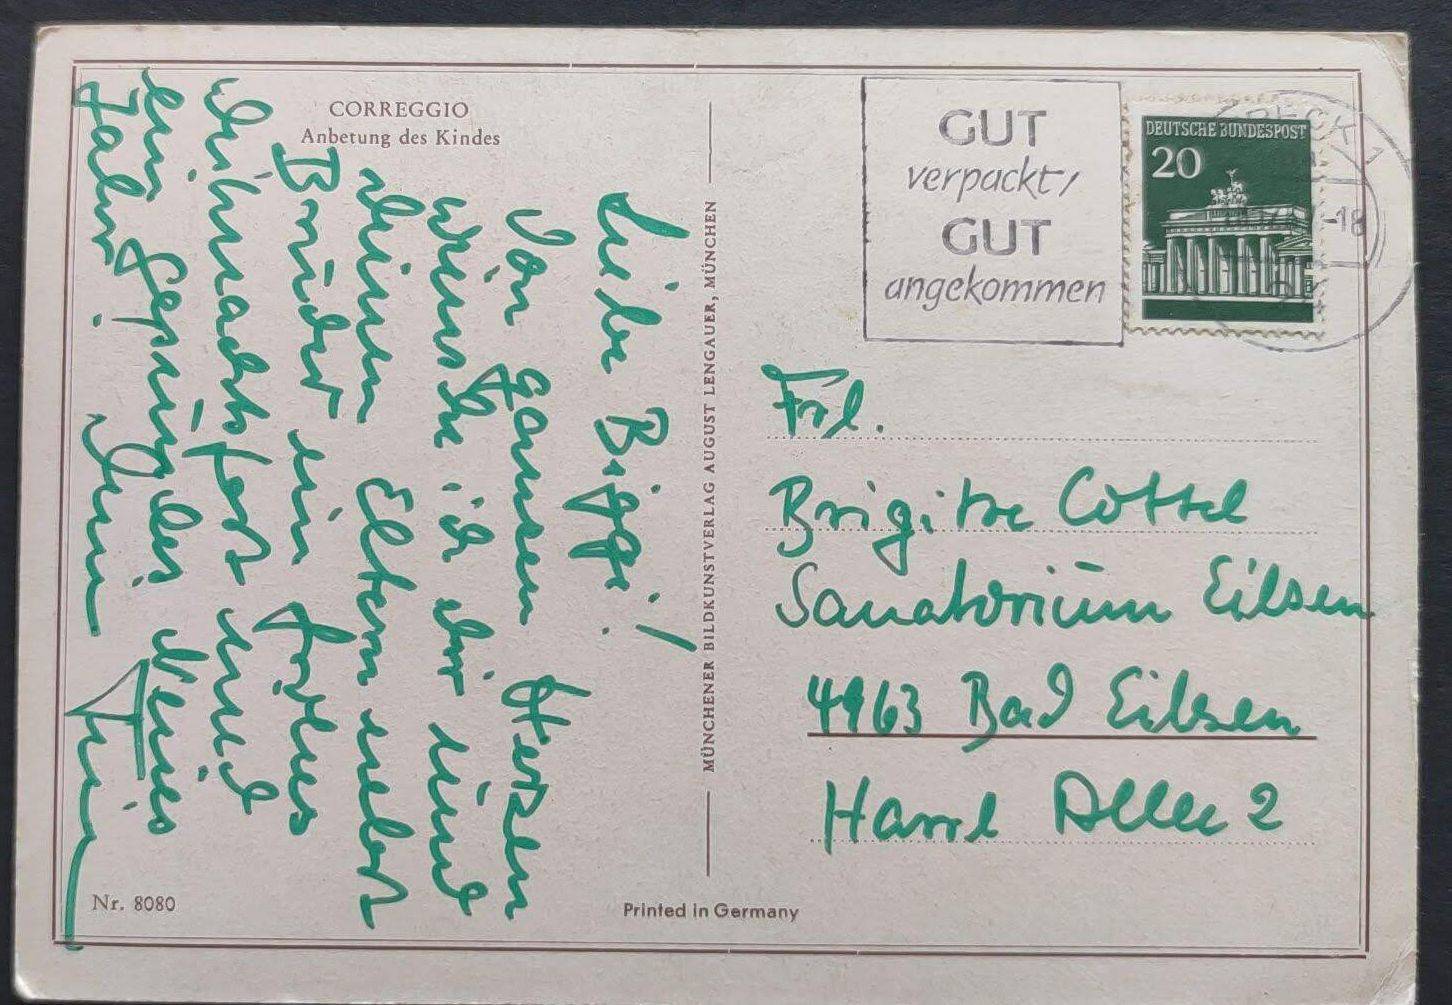 CORREGGIO
Anbetung des Kindes
Liebe Bigge!
Von ganzem Herzen
wünsche ich dir und
deinen Eltern nebst
Bruder ein frohes
Weihnachtsfest und
ein gesundes Neues
Jahr.
MÜNCHENER BILDKUNSTVERLAG AUGUST LENGAUER, MÜNCHEN
Nr. 8080
Printed in Germany
GUT
verpackt/
GUT
angekommen
DEUTSCHE BUNDESPOST
20
-18
Frl.
Brigitte Cottel
Sanatorium Eilsen
4963 Bad Eilsen
Harrl Allee 2